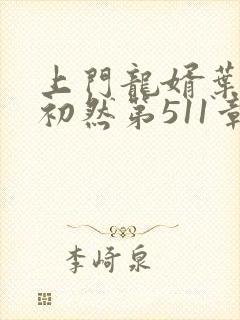 上門龍婿葉
初然第511章
李崎泉